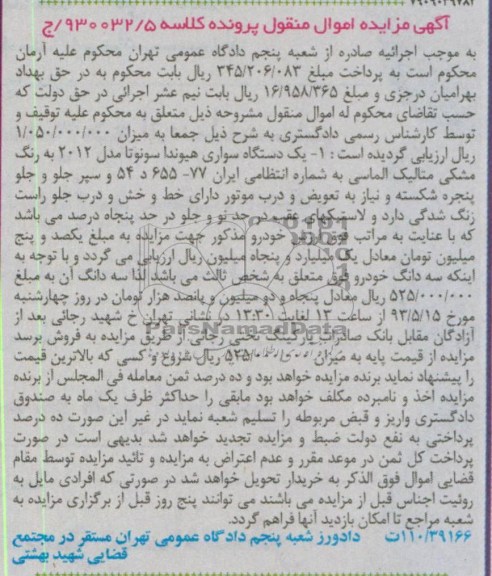 آگهی مزایده اموال منقول پرونده کلاسه ۹۳۰۰۳۲/۵/ج
به موجب اجرائیه صادره از شعبه پنجم دادگاه عمومی تهران محکوم علیه آرمان
محکوم است به پرداخت مبلغ ۳۴۵/۲۰۶/۰۸۳ ریال بابت محکوم به در حق بهداد
بهرامیان درجزی و مبلغ ۱۶/۹۵۸/۳۶۵ ریال بابت نیم عشر اجرائی در حق دولت که
حسب تقاضای محکوم له اموال منقول مشروحه ذیل متعلق به محکوم علیه توقیف و
توسط کارشناس رسمی دادگستری به شرح ذیل جمعا به میزان ۱/۰۵۰/۰۰۰/۰۰۰
ریال ارزیابی گردیده است : ۱- یک دستگاه سواری هیوندا سوناتا مدل ۲۰۱۲ به رنگ
مشکی متالیک الماسی به شماره انتظامی ایران ۷۷- ۶۵۵ د ۵۴ و سپر جلو و جلو
پنجره شکسته و نیاز به تعویض و درب موتور دارای خط و خش و درب جلو راست
زنگ شدگی دارد و لاستیکهای عقب در حد نو و جلو در حد پنجاه درصد می باشد
که با عنایت به مراتب فوق خودرو مذکور جهت مزایده به مبلغ یکصد و پنج
میلیون تومان معادل یک میلیارد و پنجاه میلیون ریال ارزیابی می گردد و با توجه به
اینکه سه دانگ خودرو فوق متعلق به شخص ثالث می باشد لذا سه دانگ آن به مبلغ
۵۲۵/۰۰۰/۰۰۰ ریال معادل پنجاه و دو میلیون و پانصد هزار تومان در روز چهارشنبه
مورخ ۹۳/۵/۱۵ از ساعت ۱۳ لغایت ۱۳:۳۰ در نشانی تهران خ شهید رجائی بعد از
آزادگان مقابل بانک صادرات پارکینگ نخی رجایی از طریق مزایده به فروش برسد
مزایده از قیمت پایه به میزان ریال شروع و کسی که بالاترین قیمت
را پیشنهاد نماید برنده مزایده خواهد بود و ده درصد ثمن معامله فی المجلس از برنده
مزایده اخذ و نامبرده مکلف خواهد بود مابقی را حداکثر ظرف یک ماه به صندوق
دادگستری واریز و قبض مربوطه را تسلیم شعبه نماید در غیر این صورت ده درصد
پرداختی به نفع دولت ضبط و مزایده تجدید خواهد شد بدیهی است در صورت
پرداخت کل ثمن در موعد مقرر و عدم اعتراض به مزایده و تائید مزایده توسط مقام
قضایی اموال فوق الذکر به خریدار تحویل خواهد شد در صورتی که افرادی مایل به
روئیت اجناس قبل از مزایده می باشند می توانند پنج روز قبل از برگزاری مزایده به
شعبه مراجع تا امکان بازدید آنها فراهم گردد.
۱۱۰/۳۹۱۶۶ت دادورز شعبه پنجم دادگاه عمومی تهران مستقر در مجتمع
قضایی شهید بهشتی
ParsNamadData